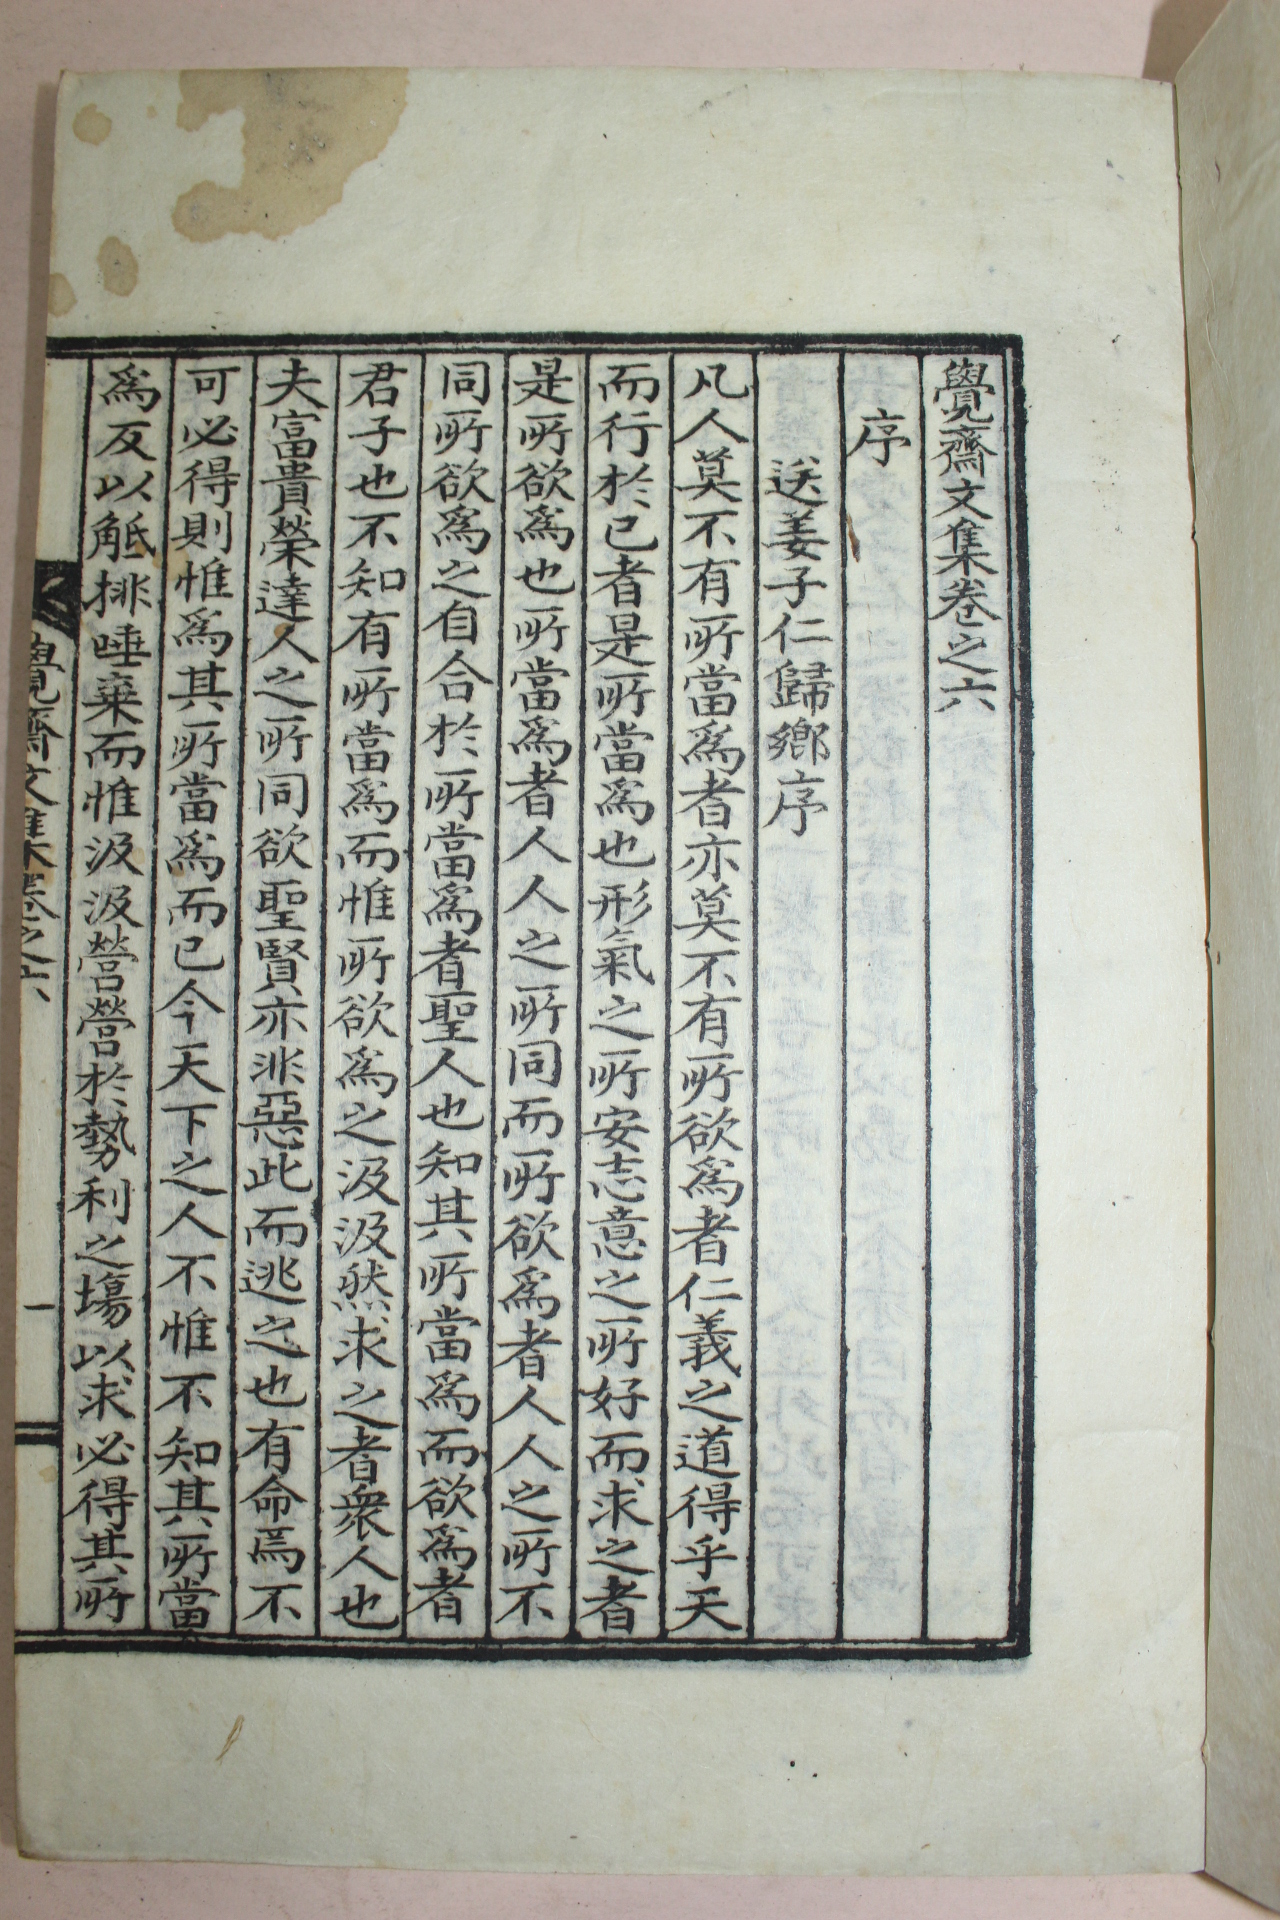 覺齋文集卷之六
序
送姜子仁歸鄕序
凡人莫不有所當爲者亦莫不有所欲爲者仁義之道得乎天
而行於已者是所當爲也形氣之所安志意之所好而求之者
是所欲爲也所當爲者人人之所同而所欲爲者人人之所不
同所欲爲之自合於所當爲者聖人也知其所當爲而欲爲者
君子也不知有所當爲而惟所欲爲之汲汲然求之者衆人也
夫富貴榮達人之所同欲聖賢亦非惡此而逃之也有命焉不
可必得則惟爲其所當爲而已今天下之人不惟不知其所當
爲反以觝排唾棄而惟汲汲營營於勢利之塲以求必得其所
覺齋文集卷之六
一